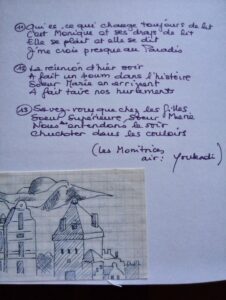 11 Qui est-ce qui change toujours de lit
C'est Monique et ses draps de lit
Elle se plaît et elle se dit
J'me crois presque au Paradis
12 La réunion d'hier soir
A fait un boum dans l'histoire
Sœur Marie en arrivant
A fait taire nos hurlements
13 Savez-vous que chez les filles
Sœur Supérieure, Sœur Marie
Nous entendons le soir
Chuchoter dans les couloirs
(Les Monitrices
air: Youkaïdi)